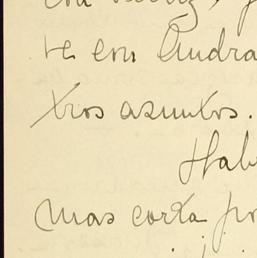 te con Audra
tros asuntos.
Hab
mas corta po